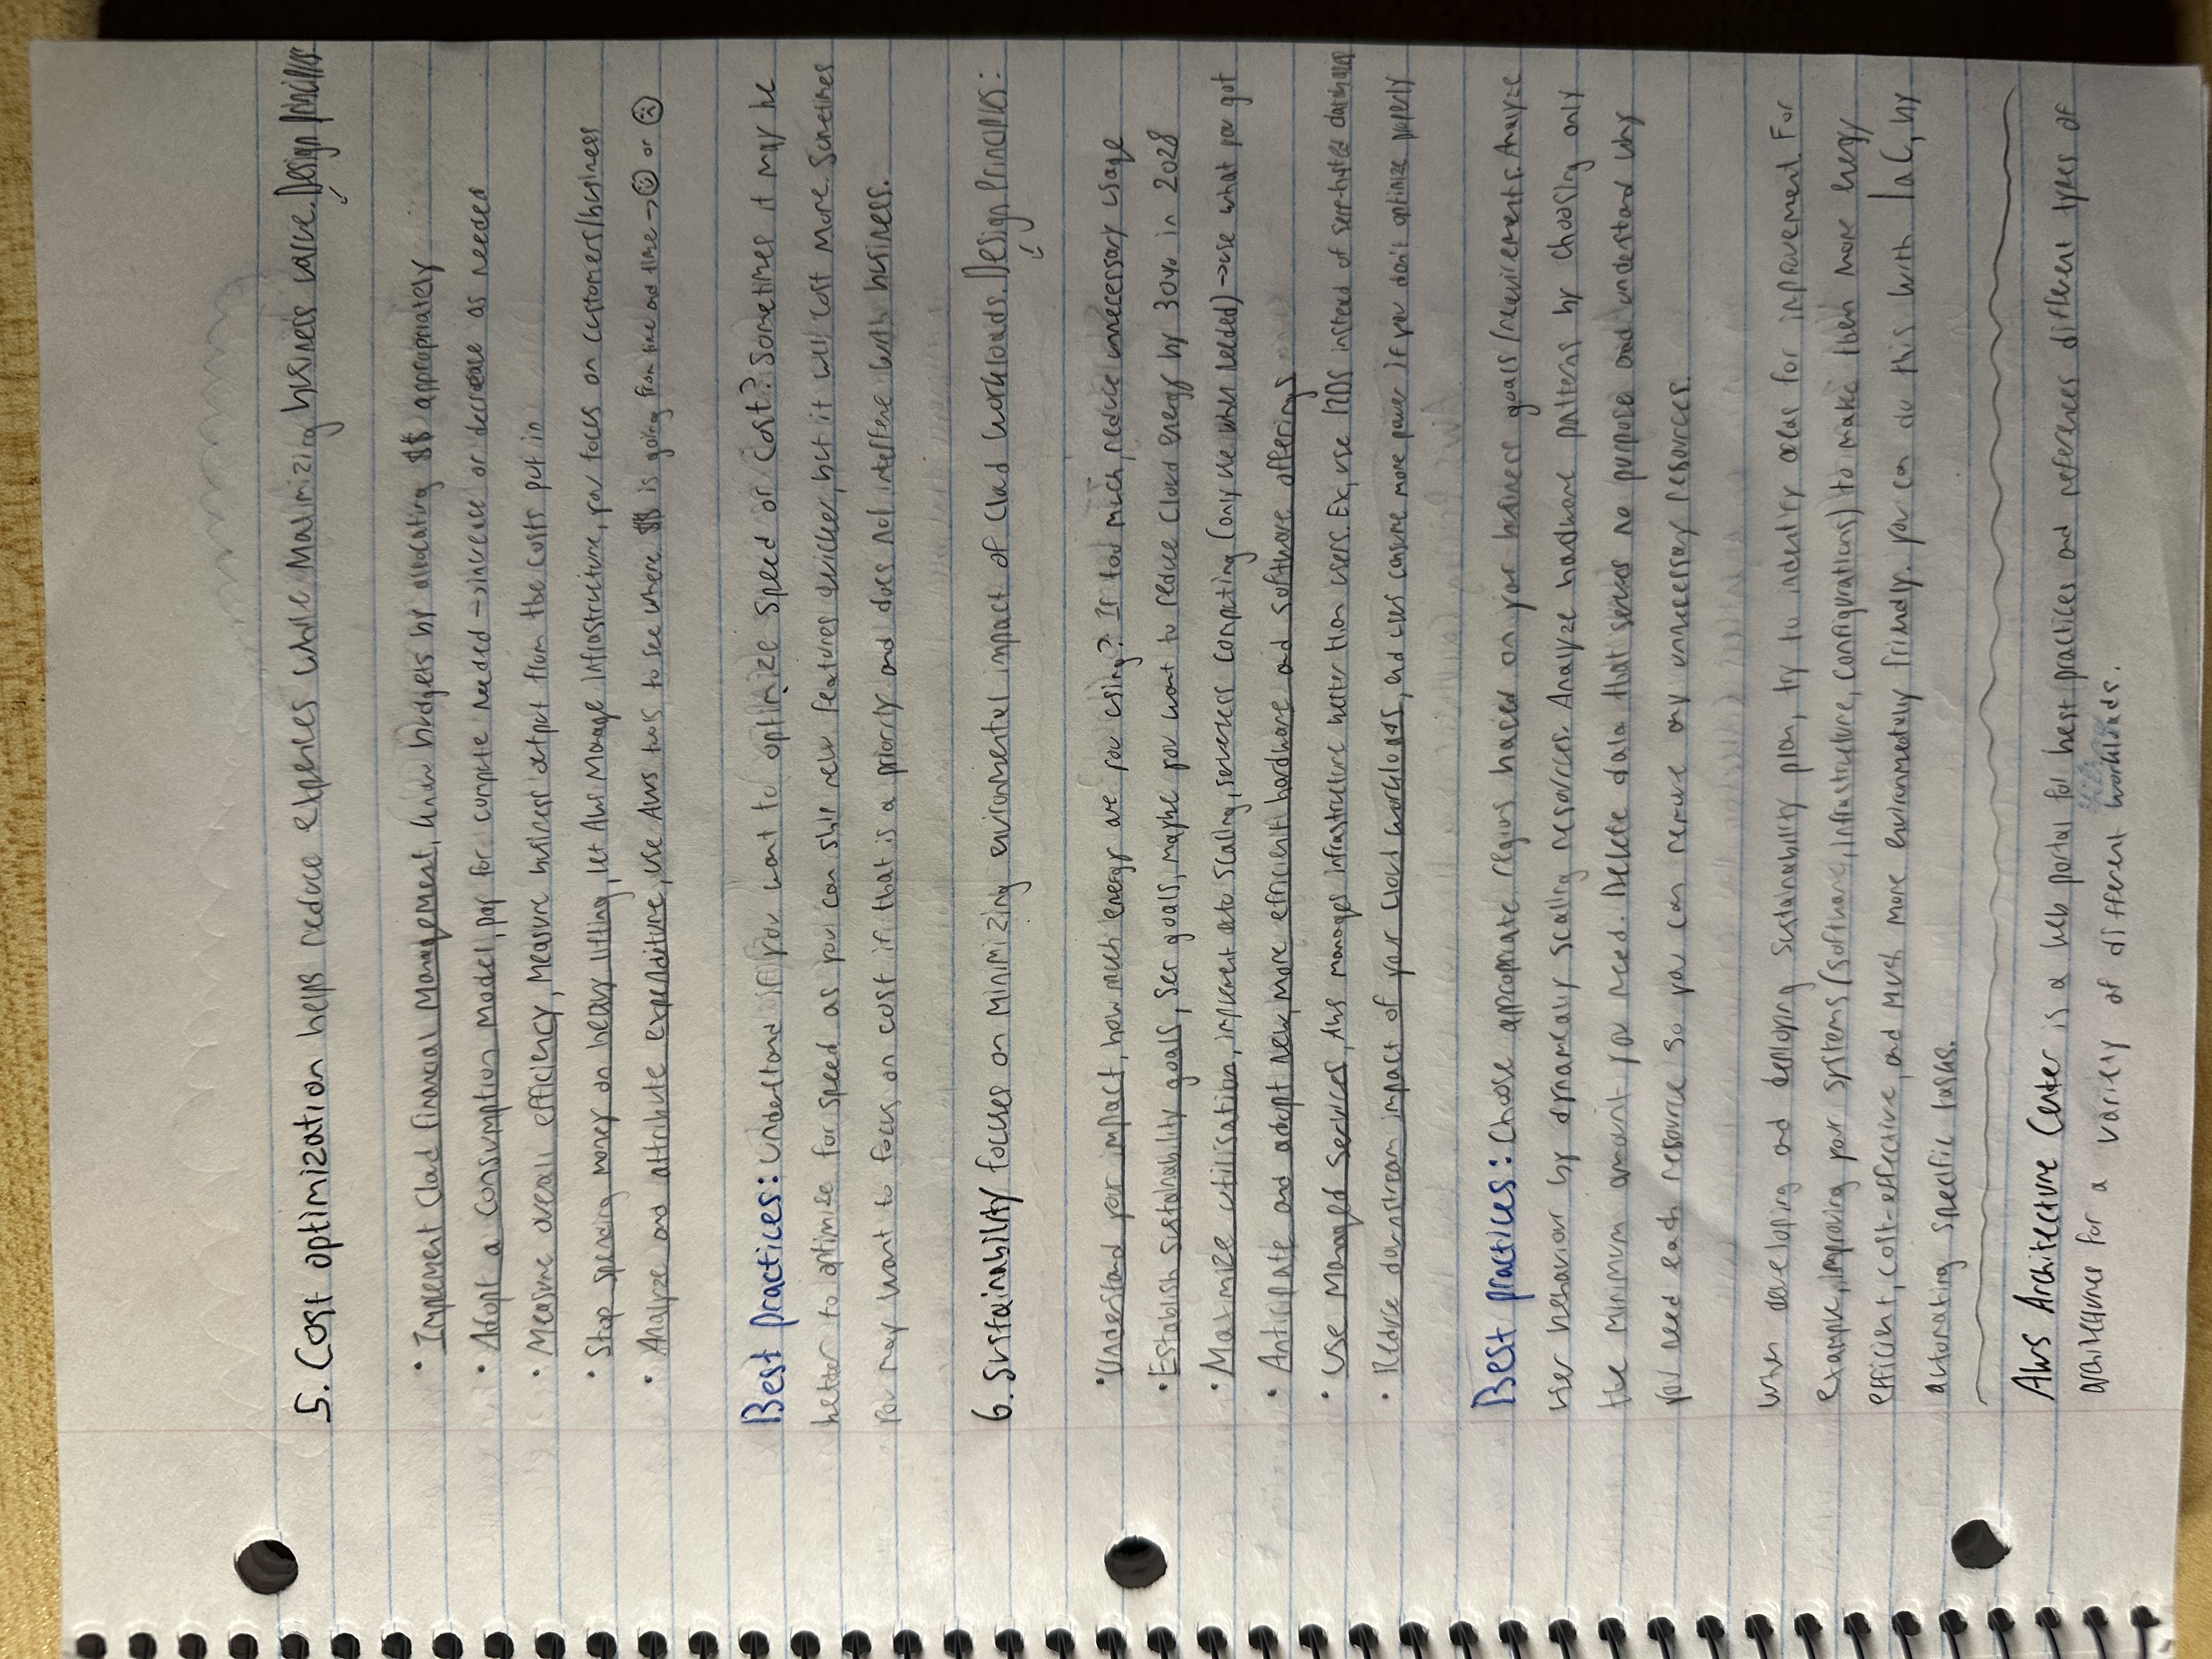 5. Cost optimization helps reduce expences while Maximizing business value. Design Principles:
• Implement Cloud Financial Management, know budgets by allocating $$ appropriately
• Adopt a Consumption Model, pay for compute needed → increase or decrease as needed
• Measure overall efficiency, Measure business output from the costs put in
• Stop spending money on heavy lifting, let AWS Manage infrastructure, you focus on customers/business
• Analyze and attribute expenditure, use AWS tools to see where $$ is going from time and time → ☺ or ☹
Best practices: Understand if you want to optimize speed or cost? Sometimes it may be
better to optimize for speed as you can ship new features quicker, but it will cost more. Sometimes
you may want to focus on cost if that is a priority and does not interfere with business.
6. Sustainability focuses on minimizing environmental impact of cloud workloads. Design Principles:
• Understand your impact, how much energy are you using? If too much, reduce unnecessary usage
• Establish sustainability goals, Set goals, maybe you want to reduce cloud energy by 30% in 2028
• Maximize utilisation, implement auto scaling, serverless computing (only use when needed) → use what you got
• Anticipate and adopt new, more efficient hardware and software offerings
• Use Managed Services, AWS manages infrastructure better than users. Ex, use RDS instead of self-hosted databases
• Reduce downstream impact of your cloud workloads, end users consume more power if you don't optimize properly
Best practices: Choose appropriate regions based on your business goals/requirements. Analyze
user behaviour by dynamically scaling resources. Analyze hardware patterns by choosing only
the minimum amount you need. Delete data that serves no purpose and understand why
you need each resource so you can remove any unnecessary resources.
When developing and deploying sustainability plan, try to indentify areas for improvement. For
example, improving your systems (software, infrastructure, configurations) to make them more energy
efficient, cost-effective, and much more environmentally friendly. you can do this with IaC, by
automating specific tasks.
AWS Architecture Center is a web portal for best practices and references different types of
architectures for a variety of different workloads.